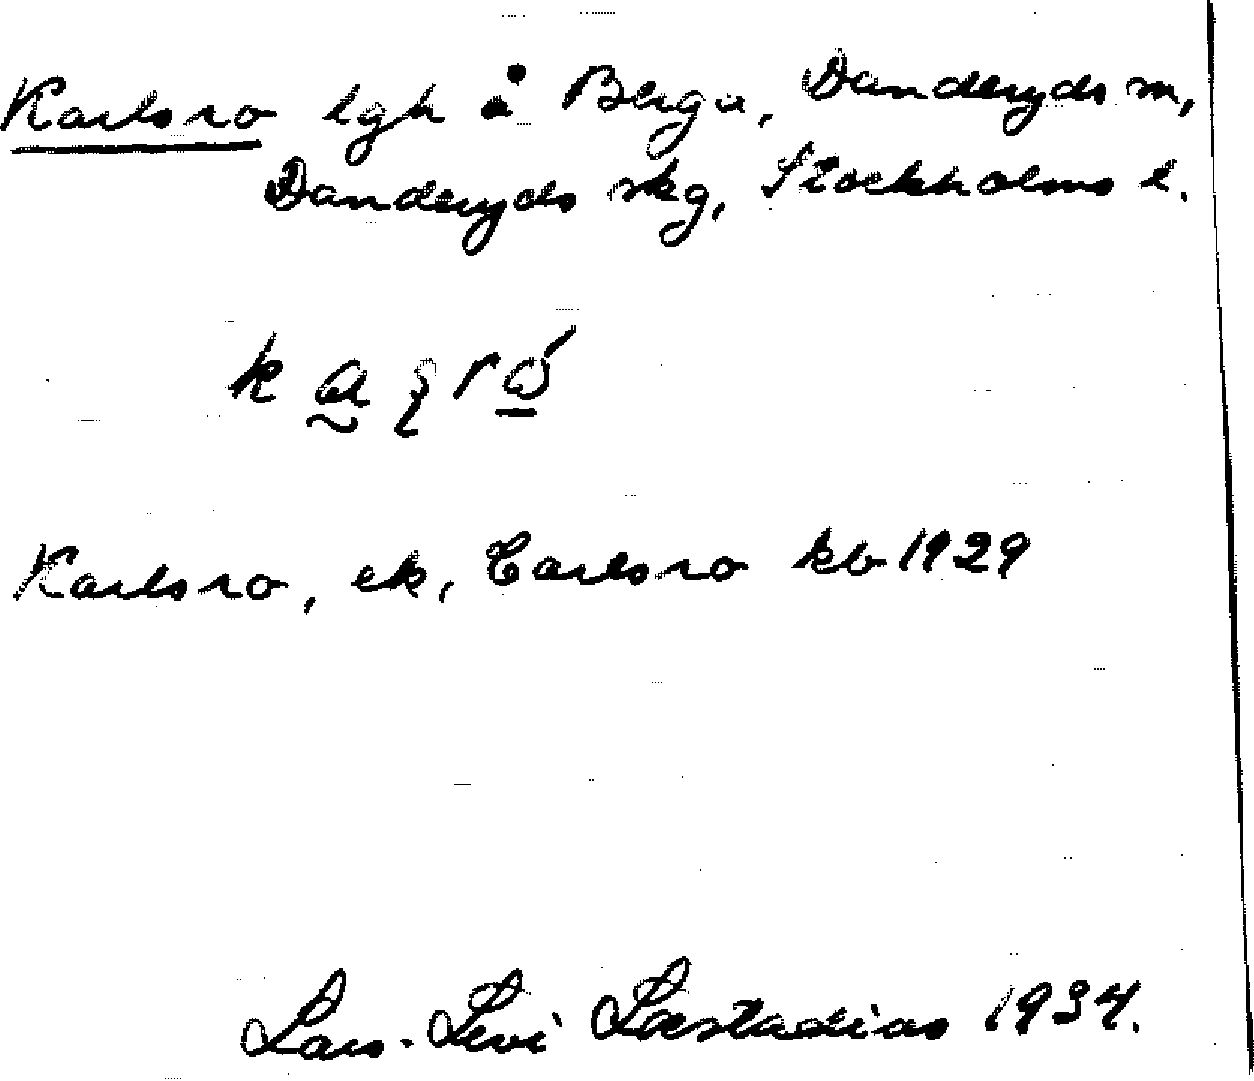 Karlsro lgh å Berga, Danderyds sn,
Danderyds skg, Stockholms l.
Karlsro, ek, Carlsro kb 1929
Lars-Levi Læstadius 1934.